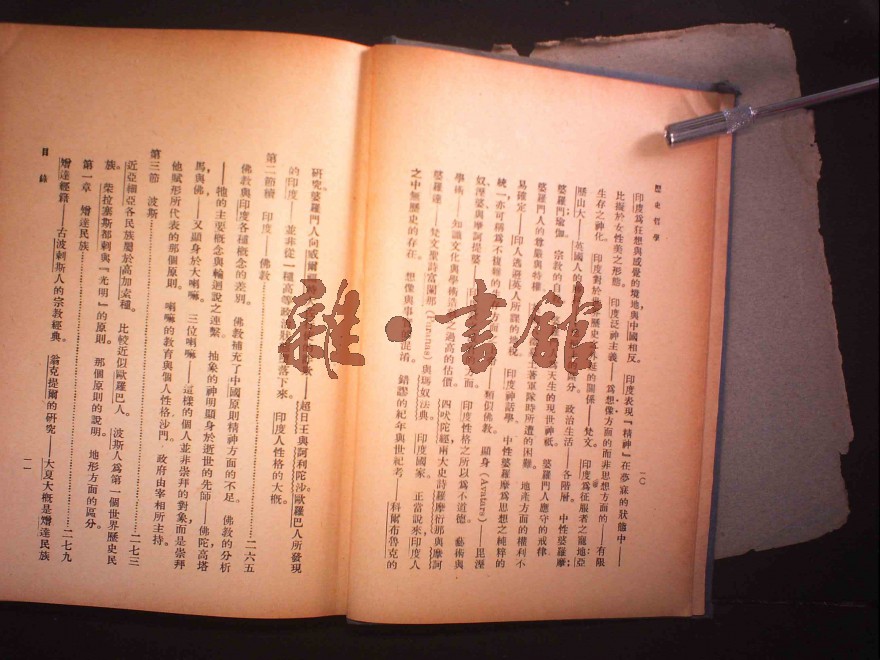 歷史哲學
一〇
印度爲狂想與感覺的境地與中國相反。 印度表現『精神』在夢寐的狀態中——
比擬於女性美之形態。 印度泛神主義——爲想像方面的而非思想方面的——有限
生存之神化。 印度對於世界歷史之外延的關係——梵文。 印度爲征服者之寵地亞
歷山大——英國人的 區分。 政治生活——各階層。 中性婆羅摩；
婆羅門；瑜伽。 宗教的自 爲天生的現世神祗。 婆羅門人應守的戒律
婆羅門人的尊嚴與特權。 土著軍隊時所遭的困難。 地產方面的權利不
易確定——印人逃避英人所課的地稅。 印度神話學。 中性婆羅摩爲思想之純粹的
統一，亦可稱爲不複雜的 方面 方面。 類似佛教。 顯身(Avatars)——毘溼
奴溼婆與摩訶提婆 印度性格之所以爲不道德。 藝術與
學術——知識文化與學術造 之過高的估價。 四吠陀經兩大史詩羅摩衍那與摩訶
婆羅達——梵文聖詩富蘭那(Puranas)與瑪奴法典。 印度國家。 正當說來，印度人
之中無歷史的存在。 想像與事 混淆。 錯謬的紀年與世紀考——科爾布魯克的
研究。婆羅門人向威爾福 超日王與阿利陀沙。歐羅巴人所發現
的印度——並非從一種高等政治 落下來。 印度人性格的大概。
第二節續 印度——佛教 二六五
佛教與印度各種概念的差別。 佛教補充了中國原則精神方面的不足。 佛教的分析
——牠的主要概念與輪迴說之連繫。 抽象的神明顯身於逝世的先師——佛陀高塔
馬與佛——又顯身於大喇嘛。 三位喇嘛——這樣的個人並非崇拜的對象，而是崇拜
他賦形所代表的那個原則。 喇嘛的教育與個人性格沙門。 政府由宰相所主持。
第三節 波斯 二七三
近亞細亞各民族屬於高加索種。 比較近似歐羅巴人。 波斯人爲第一個世界歷史民
族。 柴拉塞斯都剌與『光明』的原則。 那個原則的說明。 地形方面的區分。
第一章 燈達民族 二七九
燈達經籍——古波剌斯人的宗教經典。 翁克提爾的研究——大夏大概是燈達民族
目錄
一一
雜·書館